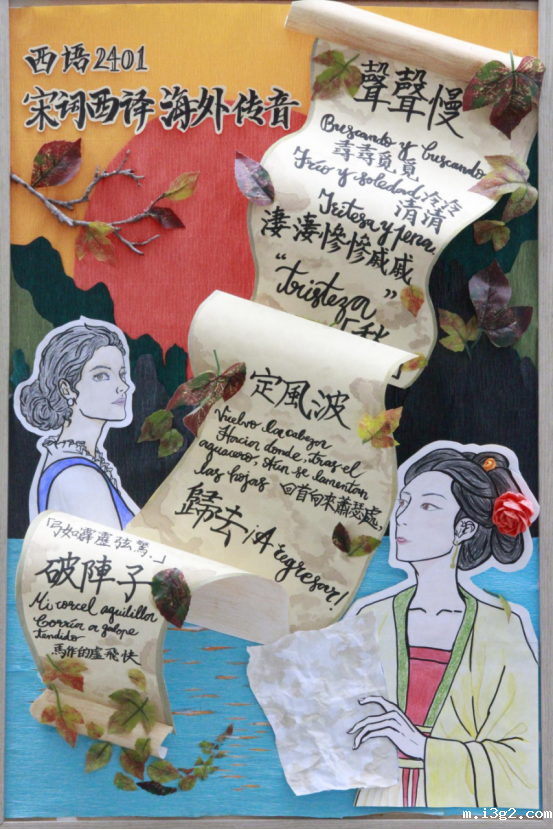 西语2401
宋词西译 海外传音
聲聲慢
Buscando y buscando
尋尋覓覓
Frío y soledad 冷冷
清清
Tristesa y pena.
淒淒慘慘戚戚
"tristeza"
定風波
Vuelvo la cabeza
Hacia donde, tras el
aguacero, Aun se lamentan
las hojas 回首向來蕭瑟處,
歸去 ¡A regresar!
「弓如霹靂弦驚.」
破陣子
Mi corcel
Corría a galope
tendido
馬作的盧飛快
m.i3g2.com